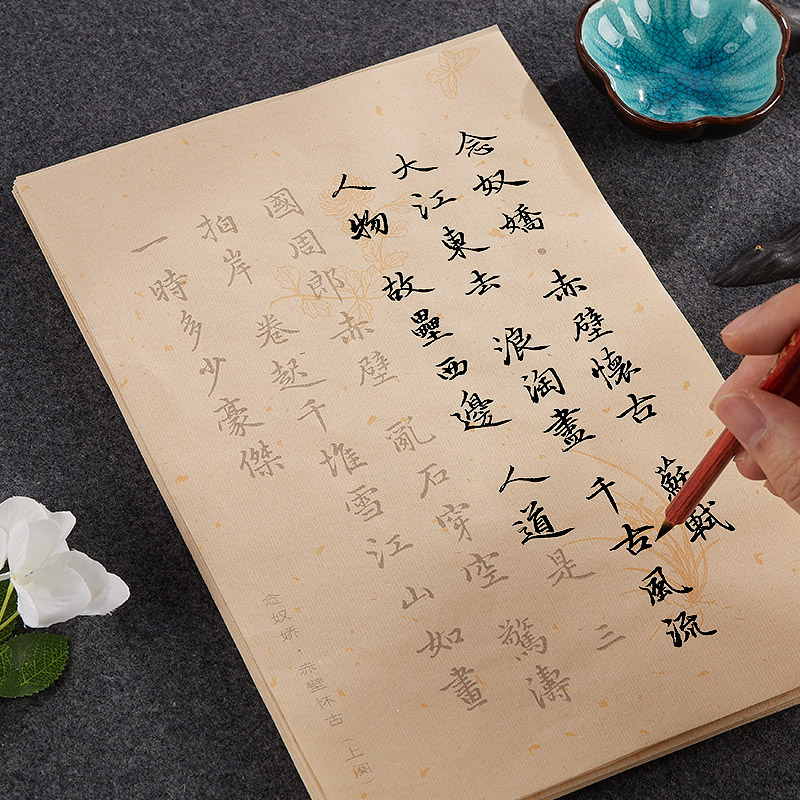 念奴嬌·赤壁懷古 蘇軾
大江東去 浪淘盡 千古風流
人物 故壘西邊 人道是 三
國周郎赤壁 亂石穿空 驚濤
拍岸 卷起千堆雪 江山如畫
一時多少豪傑
念奴娇·赤壁怀古(上阕)